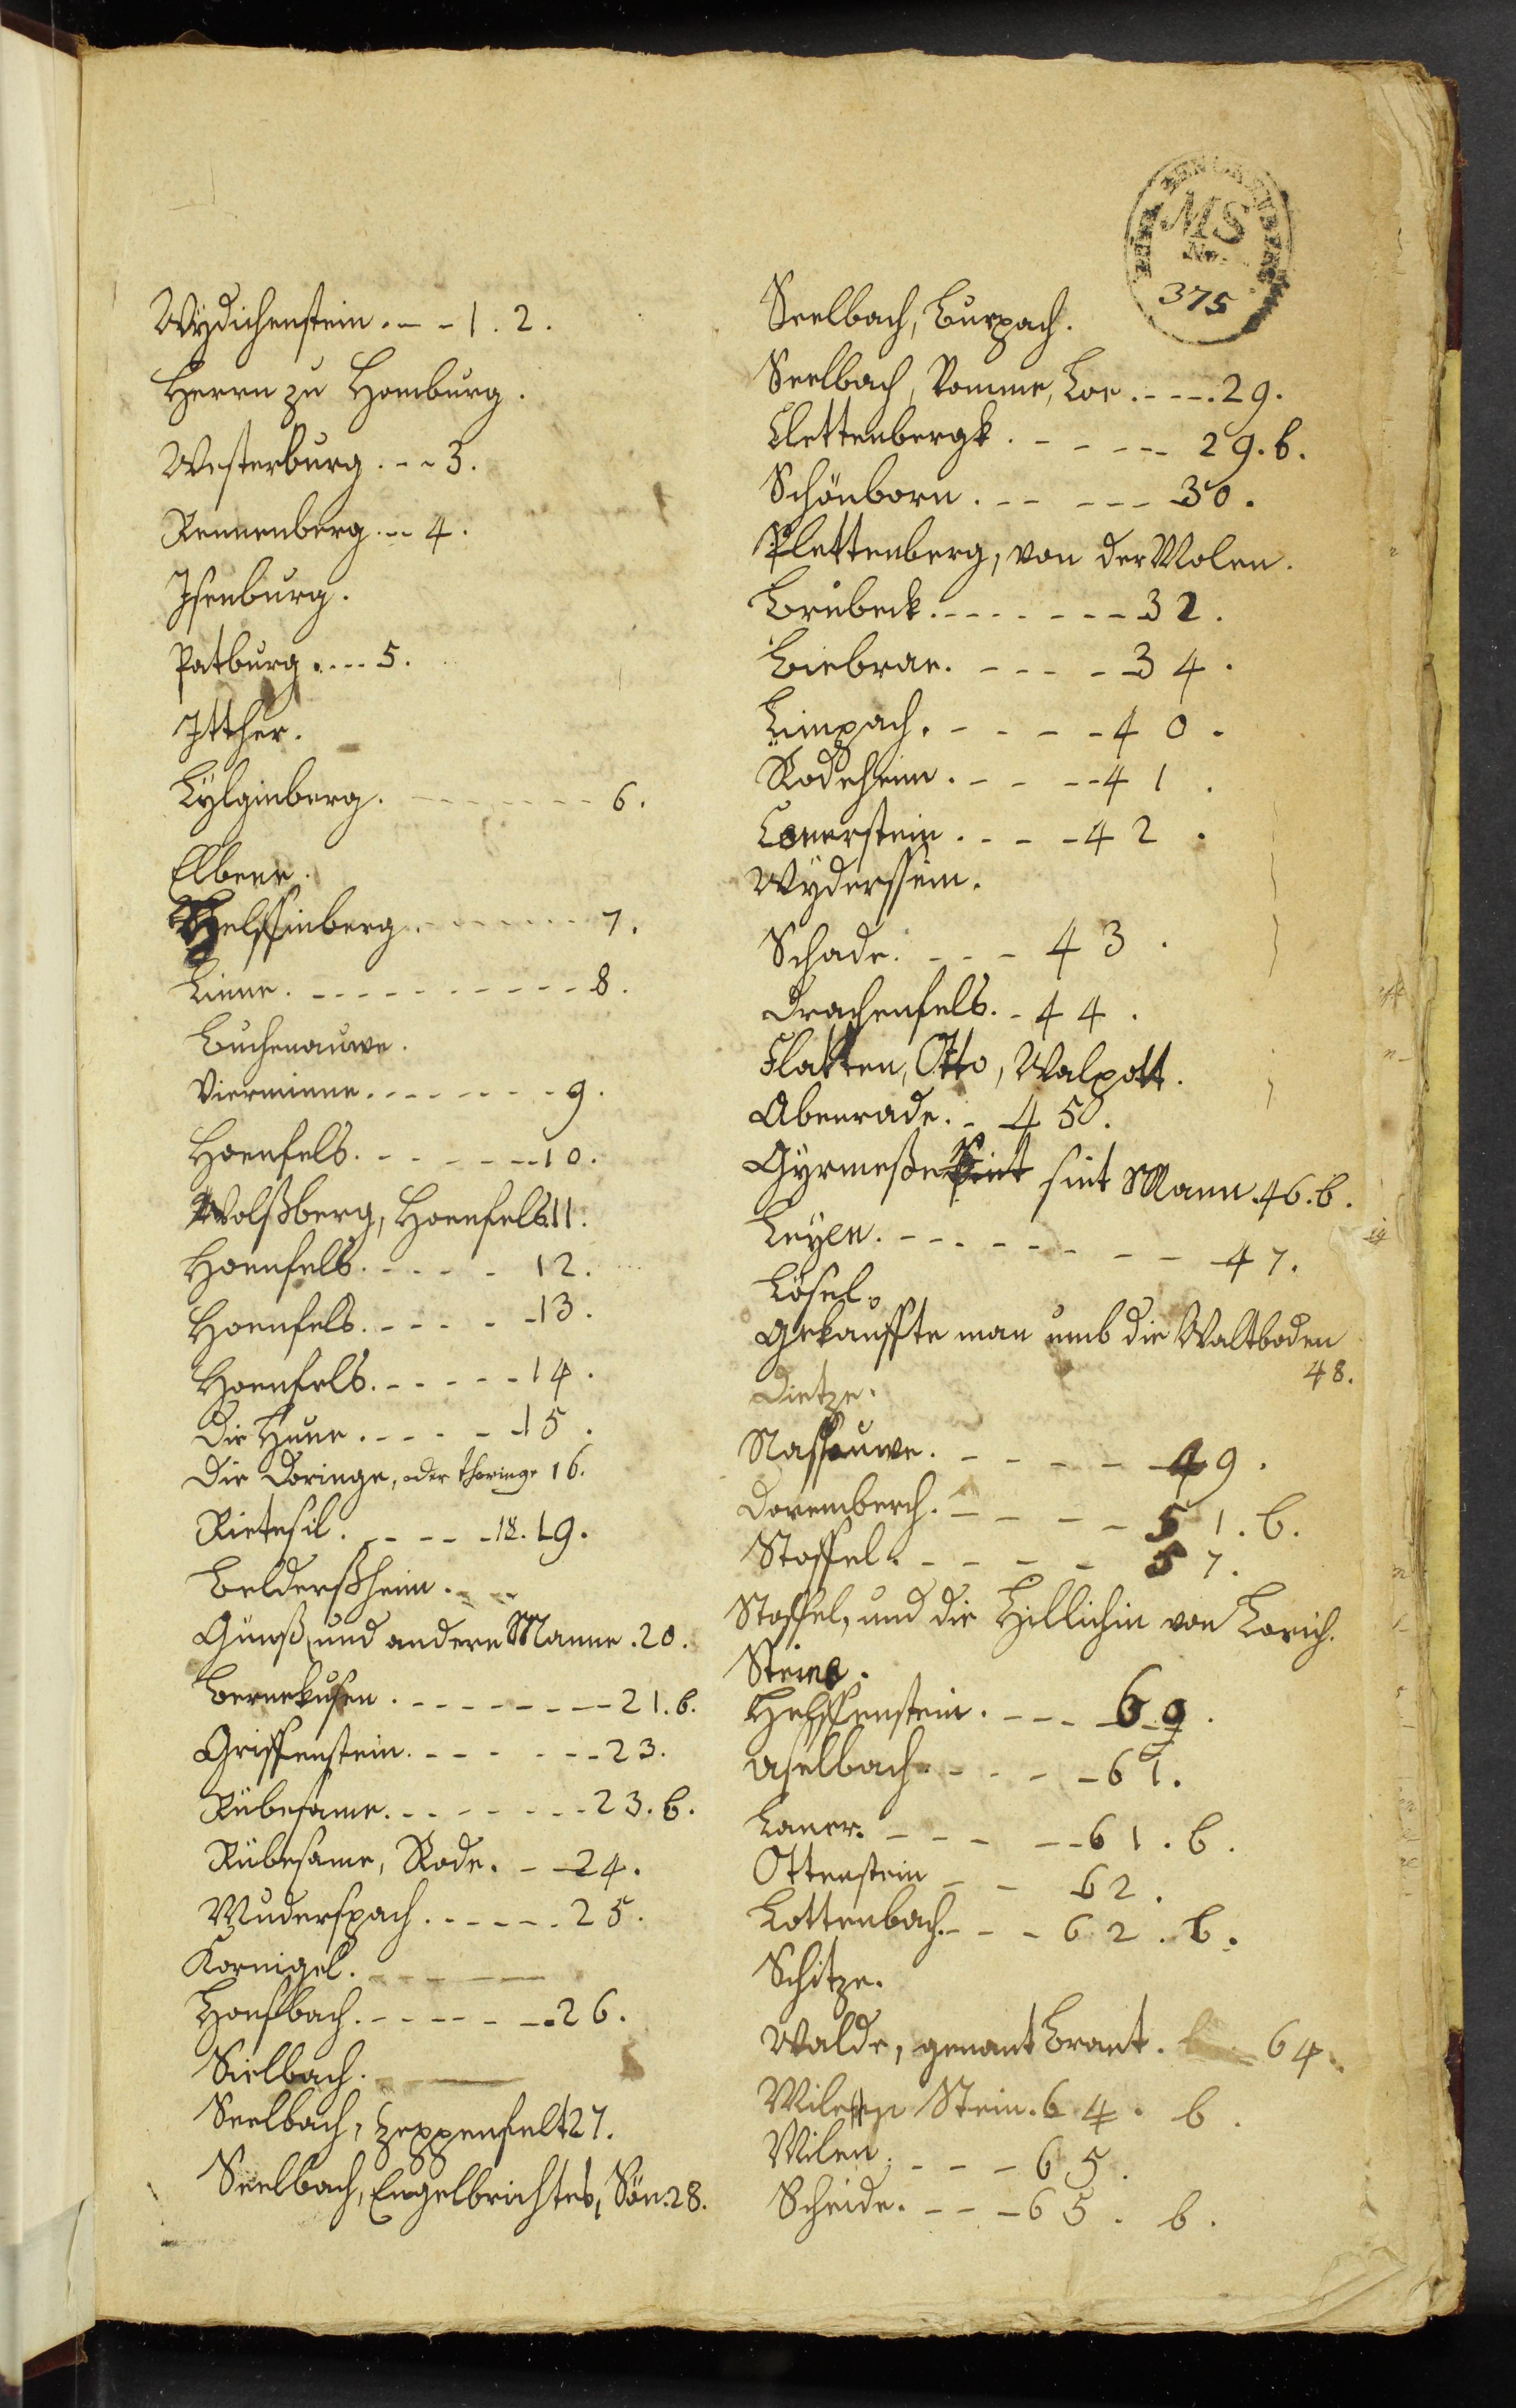 MS
No.
375
Wydichenstein . - - 1. 2.
Herrn zu Homburg.
Westerburg . - - 3.
Rennenberg . - - 4.
Isenburg.
Patburg . - - - 5.
Itther.
Lylginberg. - - - - - - - 6.
Elbene.
Helffinberg. - - - - - - 7.
Linne. - - - - - - - - - - 8.
Buchenauwe.
Vierminne. - - - - - - - 9.
Hoenfels. - - - - - - 10.
Wolffßberg, Hoenfels 11.
Hoenfels. - - - - 12.
Hoenfels. - - - - 13.
Hoenfels. - - - - - 14.
Die Hune. - - - - 15.
Die Doringe, oder thoringe 16.
Rietesil. - - - - 18. 19.
Beldersßheim. - -
Günß, und andere Manne. 20.
Bernekusen. - - - - - - - 21. b.
Griffenstein. - - - - - - 23.
Rübesame. - - - - - - - 23. b.
Rübesame, Rode. - - 24.
Muderspach. - - - - - 25.
Kornigel. - - - - -
Honsbach. - - - - - - 26.
Sielbach.
Seelbach, Zeppenfelt 27.
Seelbach, Engelbrichtes, Sön. 28.
Seelbach, Burpach.
Seelbach, Vomme, Loe. - - - - 29.
Clettenbergk. - - - - - 29. b.
Schönborn. - - - - - 30.
Plettenberg, von der Molen.
Brubeck. - - - - - - - 32.
Biebrae. - - - - - 34.
Limpach. - - - - - 40.
Rodeheim. - - - - 41.
Lonerstein. - - - - 42.
Wyderssein.
Schade. - - - 43.
Drachenfels. - 44.
Flatten, Otto, Walpott.
Abenrade. - 45.
Gyrmeße sint Mann. 46. b.
Leyen. - - - - - - - - 47.
Lösel.
Gekauffte man umb die Waltboden
48.
Dietze.
Nassauwe. - - - - - 49.
Doremberch. - - - - 51. b.
Stoffel. - - - - - 57.
Stoffel, und die Hillichin von Lorich.
Steine.
Helffenstein. - - - 60.
Uselbach. - - - - 61.
Laner. - - - - - 61. b.
Ottenstein - - 62.
Lottenbach. - - - 62. b.
Schitze.
Walde, genant Brant. 64.
Milen Stein. 64. b.
Milen. - - - 65.
Scheide. - - - 65. b.